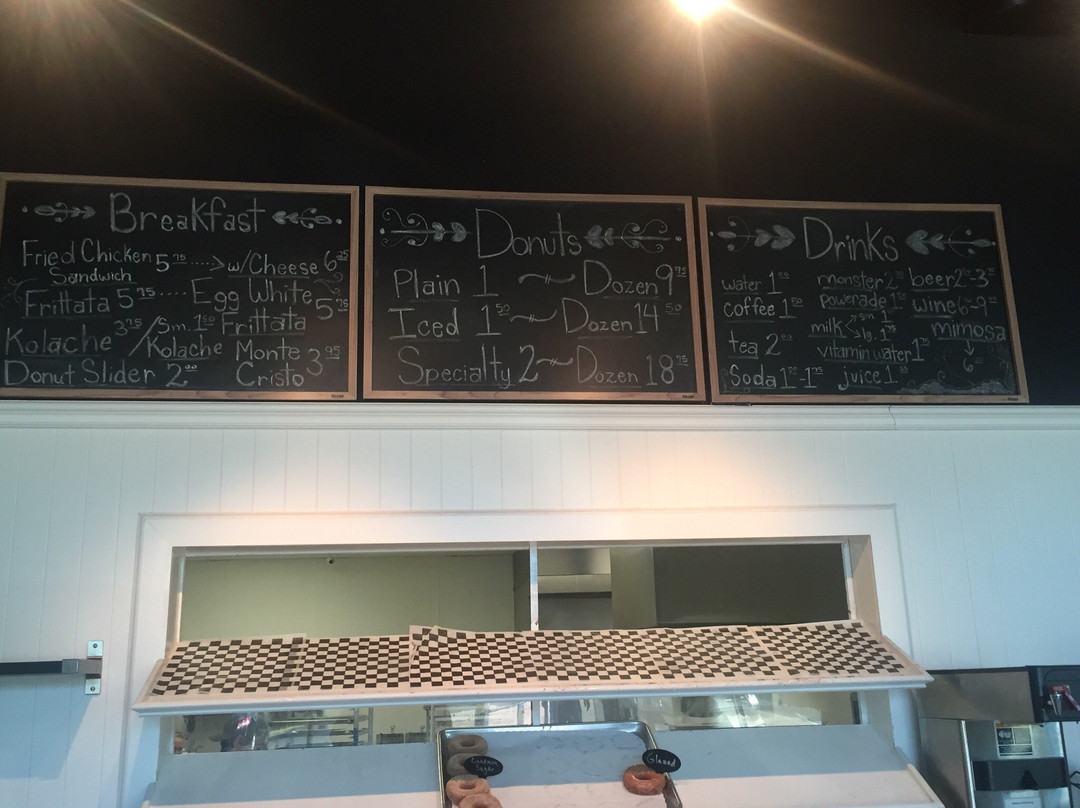 Breakfast
Fried Chicken Sandwich 5 75 ......> w/Cheese 6 25
Frittata 5 75 .... Egg White Frittata 5 75
Kolache 3 75 / Sm. Kolache 1 50
Monte Cristo 3 95
Donut Slider 2 00
Donuts
Plain 1 ~ Dozen 9 75
Iced 1 50 ~ Dozen 14 50
Specialty 2 ~ Dozen 18 75
Drinks
water 1
coffee 1 50
tea 2
Soda 1 - 1 75
monster 2
powerade 1
milk sm. 1 lg. 1
vitamin water 1 75
juice 1
beer 2 - 3
wine 6 - 9
mimosa
6
Cinnamon Sugar
Glazed